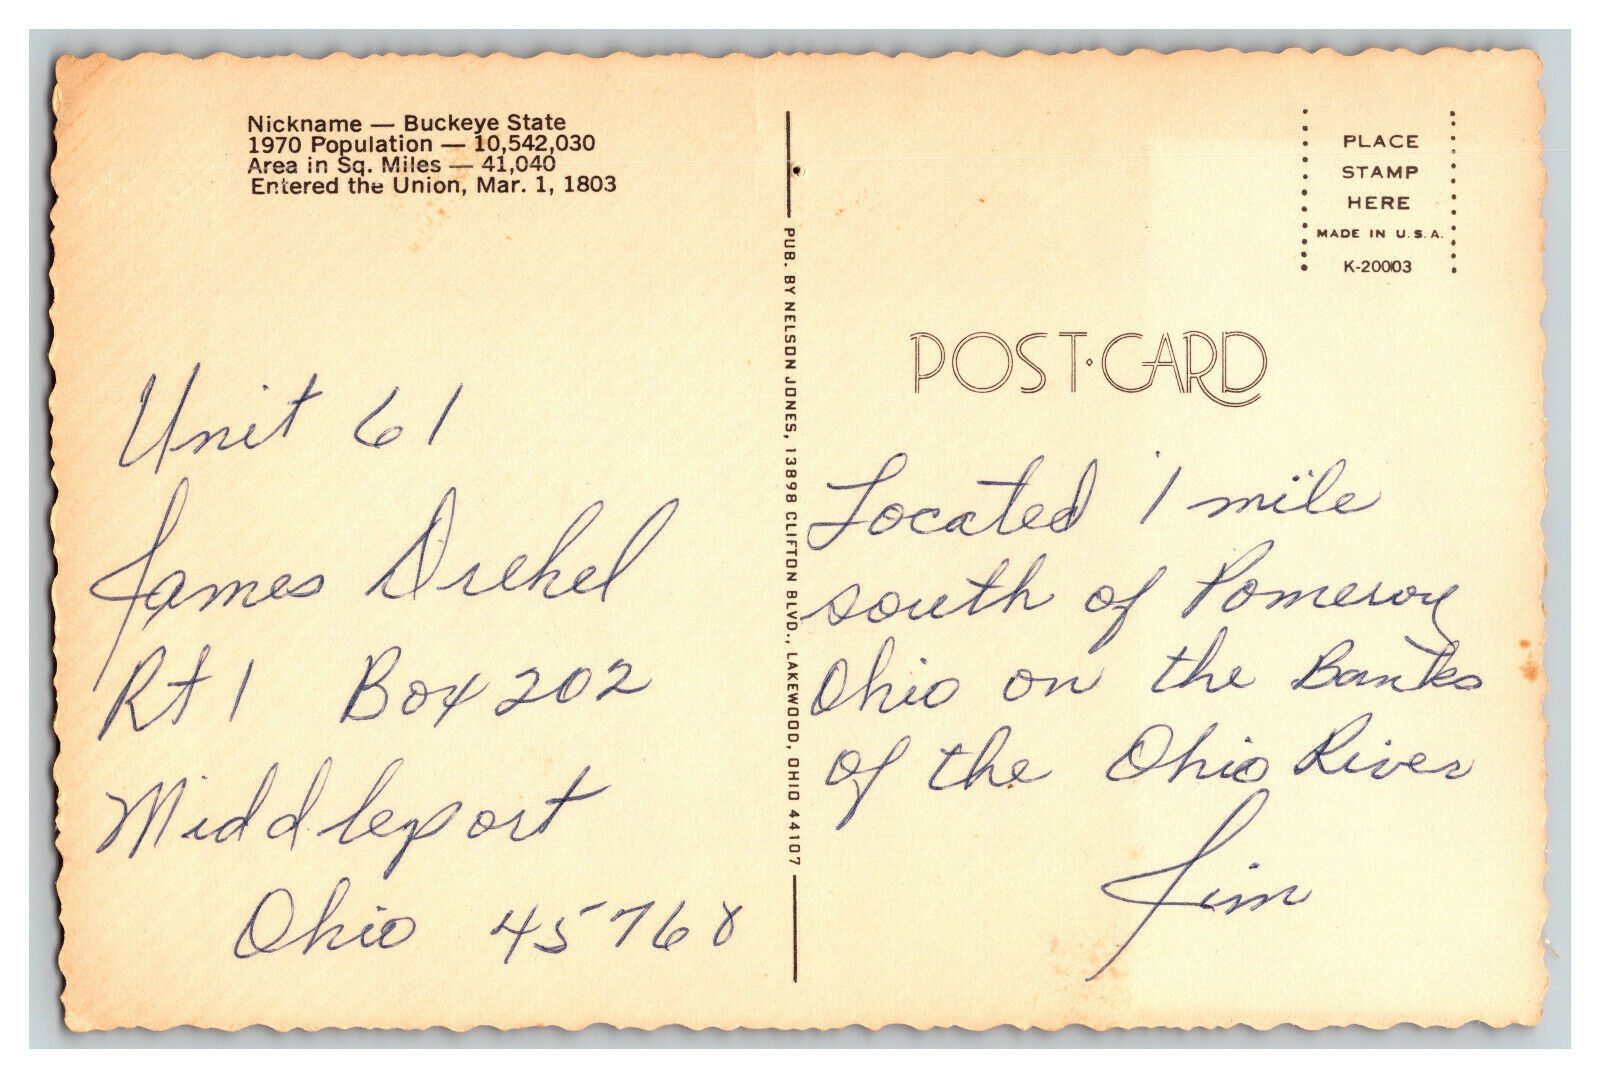 Nickname — Buckeye State
1970 Population — 10,542,030
Area in Sq. Miles — 41,040
Entered the Union, Mar. 1, 1803
Unit 61
James Drehel
Rt 1 Box 202
Middleport
Ohio 45768
PUB. BY NELSON JONES, 13898 CLIFTON BLVD., LAKEWOOD, OHIO 44107
PLACE
STAMP
HERE
MADE IN U.S.A.
K-20003
POST·CARD
Located 1 mile
south of Pomeroy
Ohio on the Banks
of the Ohio River
Jim